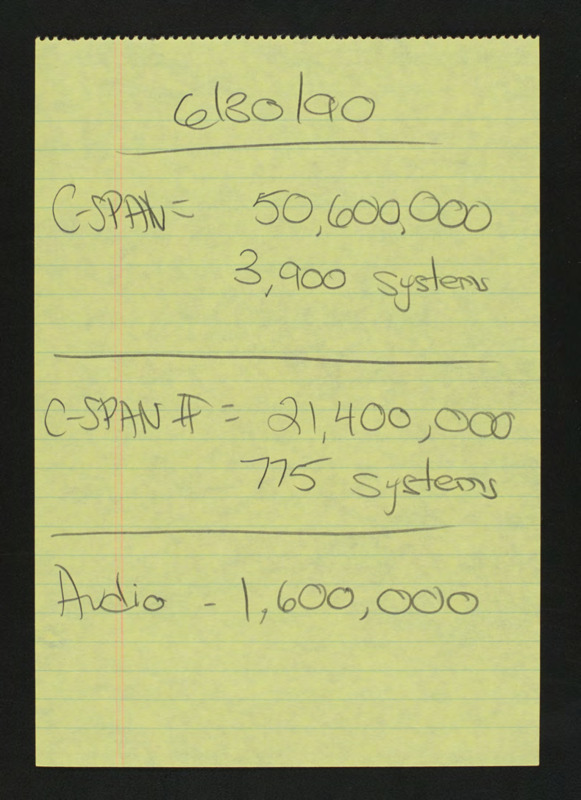 6/30/90
C-SPAN = 50,600,000
3,900 systems
C-SPAN II = 21,400,000
775 systems
Audio - 1,600,000